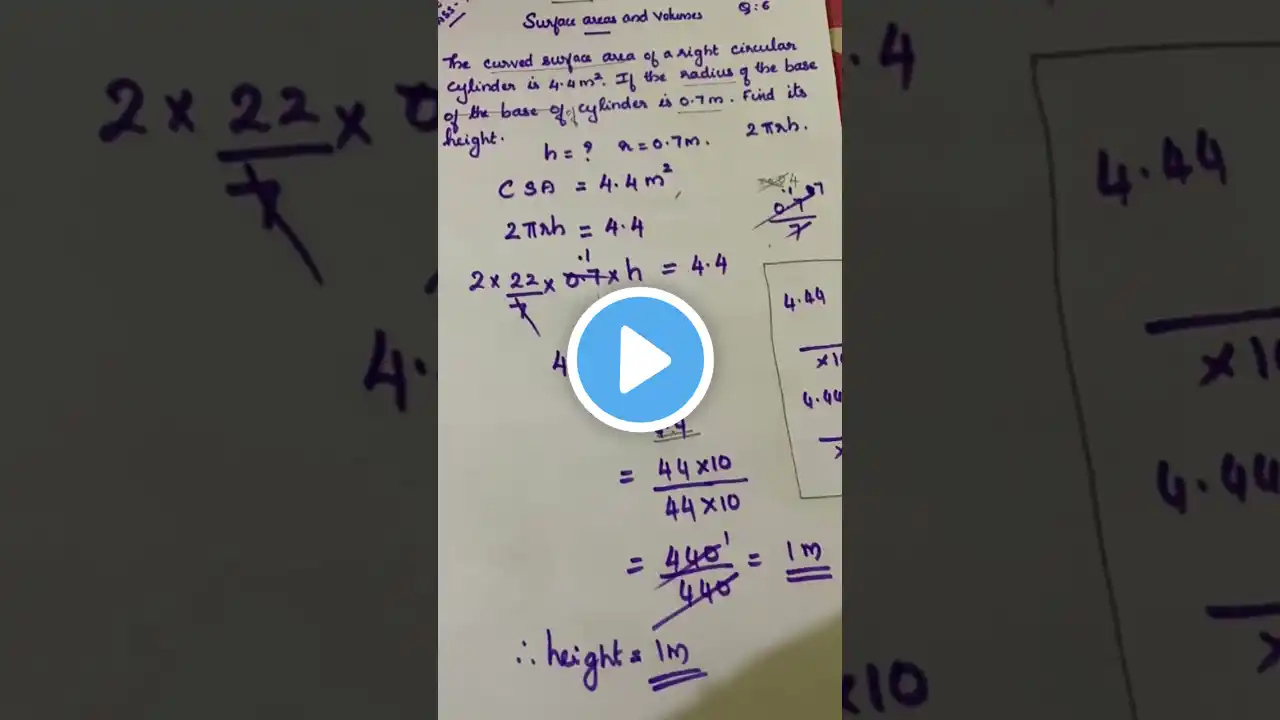 Surface areas and Volumes Q:6
The curved surface area of a right circular
cylinder is 4.4m². If the radius of the base
of the base of cylinder is 0.7m. Find its
height.
h = ? r = 0.7m. 2πrh.
CSA = 4.4m²
2πrh = 4.4
2 × 22/7 × 0.7 × h = 4.4
.1
0.7
7
4.44
×10
4.44
= 44×10
44×10
= 440 1 = 1m
440
∴ height = 1m